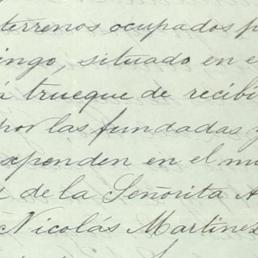 terrenos ocupados p
ingo, situado en e
á trueque de recibi
por las fundadas y
xponden en el m
de la Señorita A
Nicolás Martinez